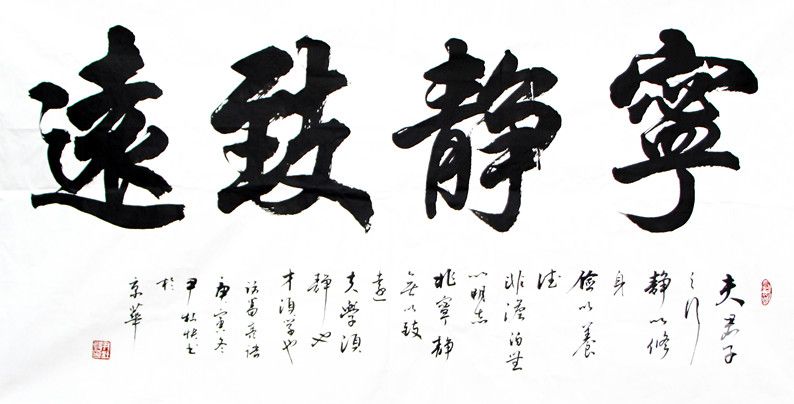 寧静致遠
夫君子
之行
静以修
身
儉以養
德
非澹泊無
以明志
非寧静
無以致
遠
夫學須
静也
才須學也
诸葛亮语
庚寅冬
尹
於
京華